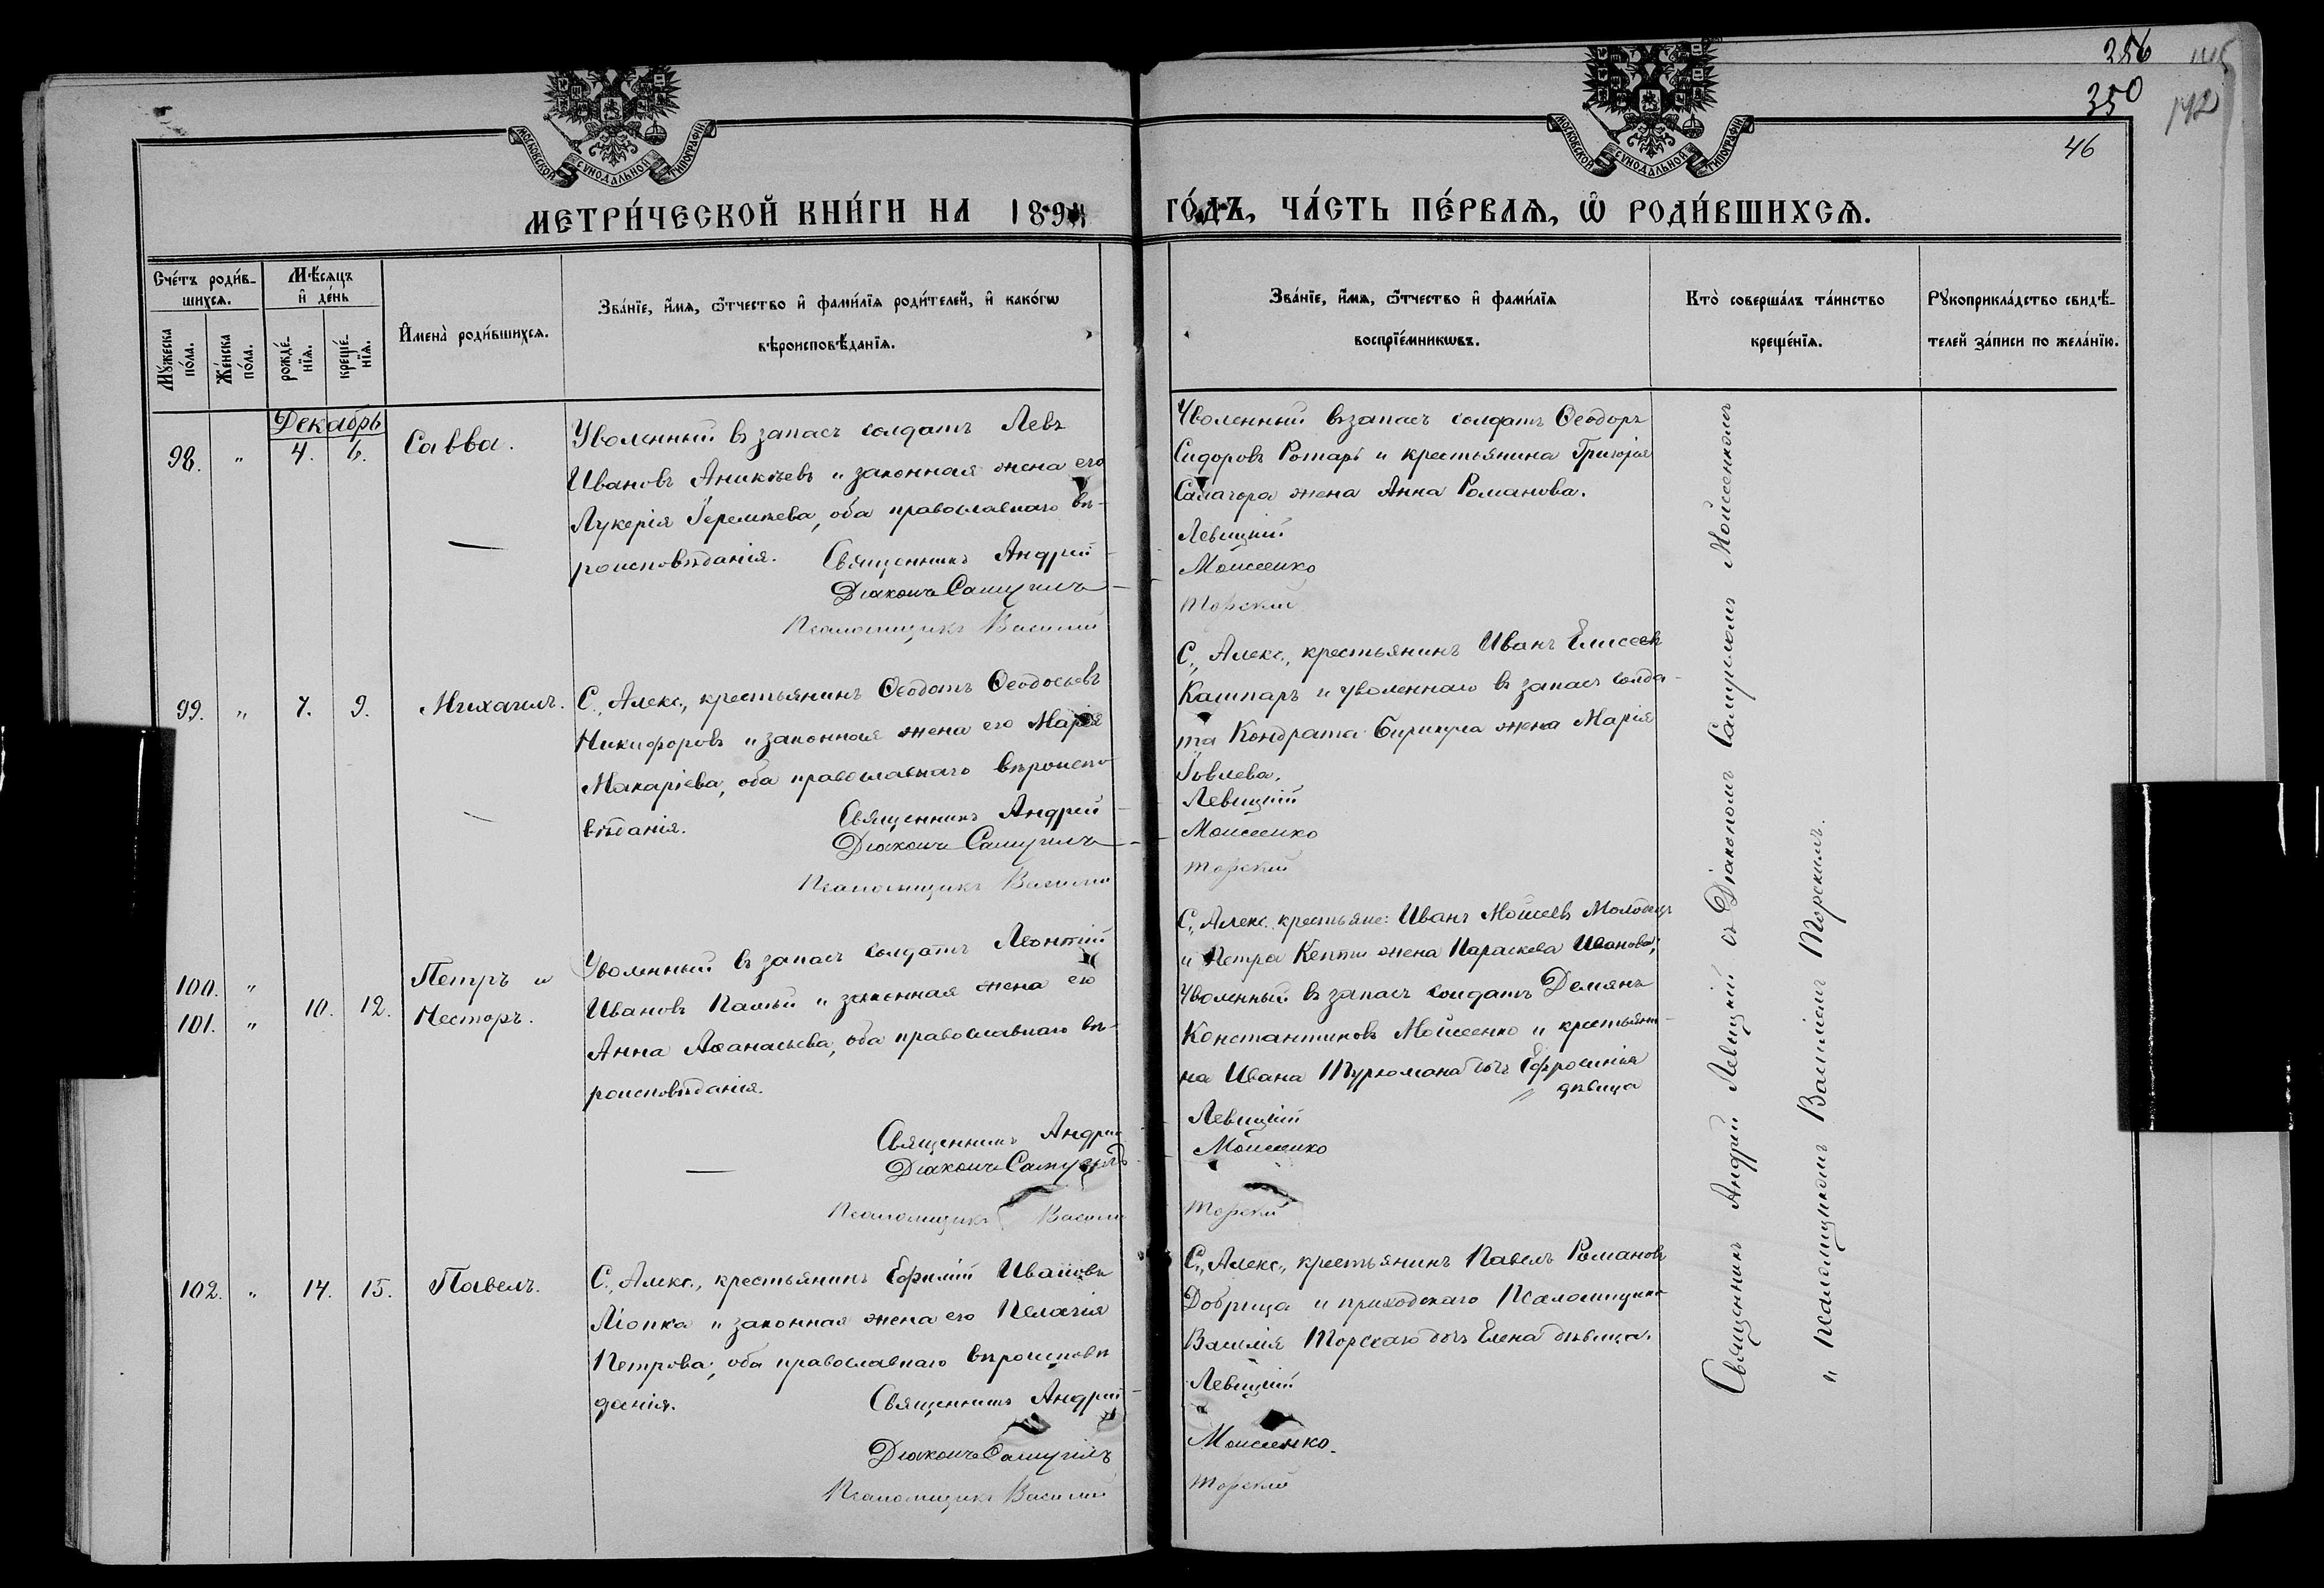 256
350
46
МОСКОВСКОЙ СѴНОДАЛЬНОЙ ТИПОГРАФІИ
МОСКОВСКОЙ СѴНОДАЛЬНОЙ ТИПОГРАФІИ
МЕТРИ́ЧЕСКОЙ КНИ́ГИ НА 189
ГО́ДЪ, ЧА́СТЬ ПЕ́РВАѦ, Ѡ҆ РОДИ́ВШИХСѦ.
Сче́тъ роди́в-
шихсѧ.
Мꙋ́жеска по́ла.
Же́нска по́ла.
Мѣ́сѧцъ
и҆ де́нь
рожде́-нїѧ.
креще́-нїѧ.
И҆мена̀ роди́вшихсѧ.
Зва́нїе, и҆́мѧ, ѻ҆́тчество и҆ фами́лїѧ роди́телей, и҆ како́гѡ
вѣроисповѣ́данїѧ.
Зва́нїе, и҆́мѧ, ѻ҆́тчество и҆ фами́лїѧ
воспрїе́мникѡвъ.
Кто̀ соверша́лъ та́инство
креще́нїѧ.
Рꙋкоприкла́дство свидѣ́-
телей за́писи по жела́нїю.
Декабрь
98. " 4. 6. Савва.
Уволенный въ запасъ солдатъ Левъ
Ивановъ Аникіевъ и законная жена его
Лукерія Іереміева, оба православнаго вѣ-
роисповѣданія. Священникъ Андрей
Діаконъ Самуилъ
Псаломщикъ Василий
Уволенный въ запасъ солдатъ Ѳеодоръ
Сидоровъ Ротарь и крестьянина Григорія
Самагора жена Анна Романова.
Левицкій
Моисеенко
Торскій
99. " 7. 9. Михаилъ.
С. Алекс., крестьянинъ Ѳеодотъ Ѳеодосьевъ
Никифоровъ и законная жена его Марія
Макаріева, оба православнаго вѣроиспо-
вѣданія. Священникъ Андрей
Діаконъ Самуилъ
Псаломщикъ Василий
С. Алекс., крестьянинъ Иванъ Елисеевъ
Кашпаръ и уволеннаго въ запасъ солда-
та Кондрата Бирикула жена Марія
Іовлева.
Левицкій
Моисеенко
Торскій
100. "
101. "
10. 12.
Петръ и
Несторъ.
Уволенный въ запасъ солдатъ Леонтій
Ивановъ Палій и законная жена его
Анна Аѳанасьева, оба православнаго вѣ-
роисповѣданія.
Священникъ Андрей
Діаконъ Самуилъ
Псаломщикъ Василий
С. Алекс. крестьяне: Иванъ Моисеевъ Молодецъ
и Петра Кепти жена Параскева Иванова;
Уволенный въ запасъ солдатъ Демянъ
Константиновъ Моисеенко и крестьяни-
на Ивана Туркомана дочь Ефросинія
дѣвица
Левицкій
Моисеенко
Торскій
102. " 14. 15. Павелъ.
С. Алекс., крестьянинъ Ефимій Ивановъ
Ліопка и законная жена его Пелагія
Петрова, оба православнаго вѣроисповѣ-
данія. Священникъ Андрей
Діаконъ Самуилъ
Псаломщикъ Василий
С. Алекс., крестьянинъ Павелъ Романовъ
Добрица и приходскаго Псаломщика
Василія Торскаго дочь Елена дѣвица.
Левицкій
Моисеенко.
Торскій
Священникъ Андрей Левицкій съ Діакономъ Самуиломъ Моисеенкомъ
и Псаломщикомъ Василіемъ Торскимъ.